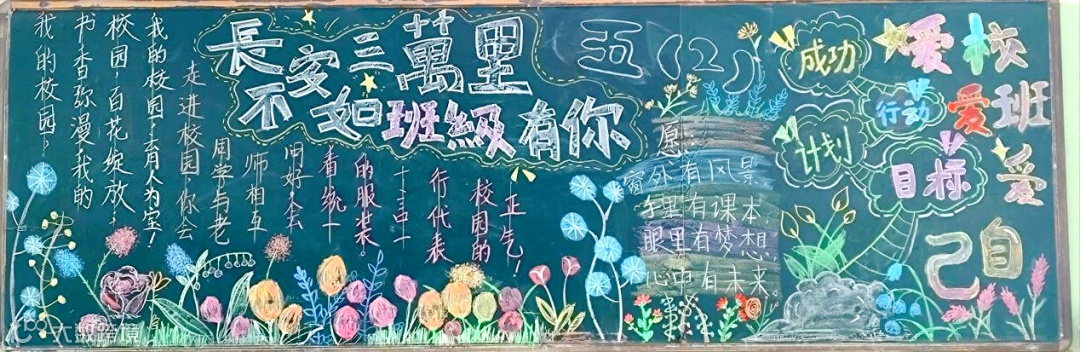 長安三萬里
不如班級有你
五(2)
我的校园，
书香弥漫我的
校园，百花绽放，
我的校园，育人为宝！
走进校园，你会
同学与老
师相互
问好，会
看统一
的服装。
一言一
行代表
校园的
正气！
愿
窗外有风景
手里有课本
眼里有梦想
心中有未来
成功
行动
计划
目标
爱校
爱班
爱
自己
大数跨境